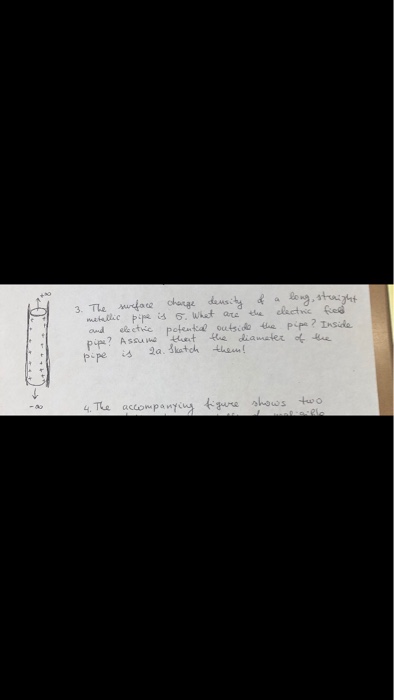 +∞
3. The surface charge density of a long, straight
metallic pipe is σ. What are the electric field
and electric potential outside the pipe? Inside
pipe? Assume that the diameter of the
pipe is 2a. Sketch them!
-∞
4. The accompanying figure shows two